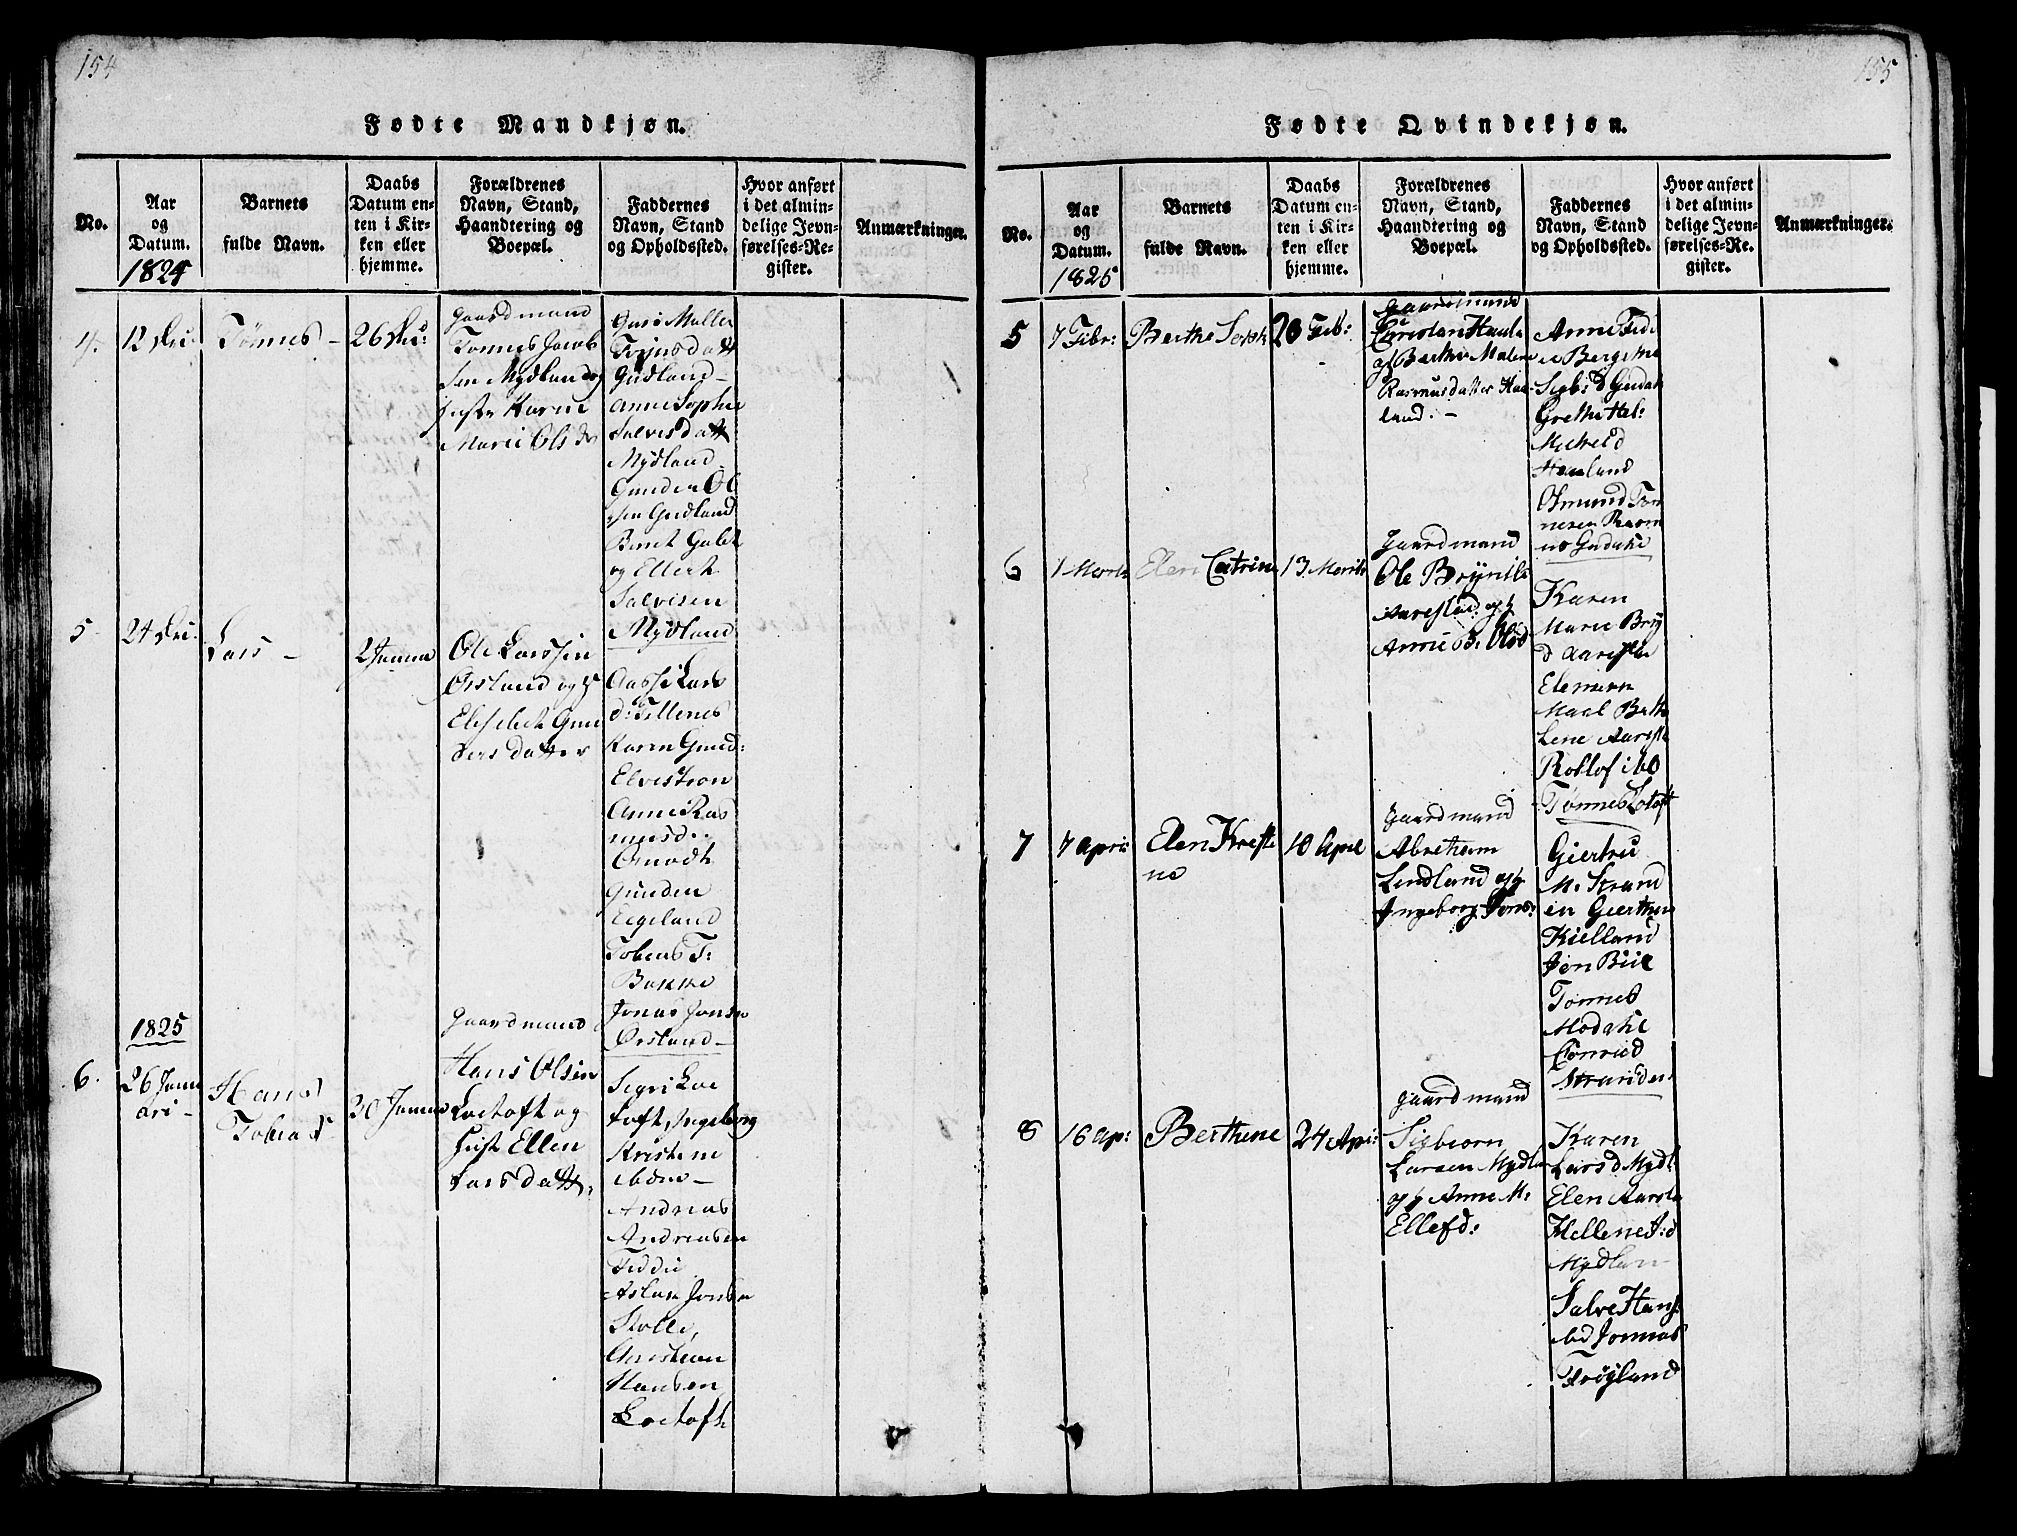 154
Fødte Mandkjøn.
No.
Aar
og
Datum.
1824
Barnets
fulde Navn.
Daabs
Datum en-
ten i Kir-
ken eller
hjemme.
Forældrenes
Navn, Stand,
Haandtering og
Boepæl.
Faddernes
Navn, Stand
og Opholdssted.
Hvor anført
i det almin-
delige Jevn-
førelses-Re-
gister.
Anmærkninger.
4.
12 Dec:
Tønnes -
26 Dec:
gaardmand
Tønnes Jacob
sen Mydland og
Karen
Marie Ols dr
Guro Malle
Tønes datt
Gudland -
Anne Sophie
Salves datt
Mydland
Gunder Ol
sen Gudland
Berret
og Ellert
Salvesen
Mydland
5
24 Dec.
Lars -
2 Janua
Ole Larssen
Orsland og h
Elisebet Gun
ders datter
Aasse Lars
d: Tellenes
Karen Gund:
Elvestron
Anne Ras
musd..
Gunder
Eegeland
Tobias T:
Bakke
Jonas Jonse
Orsland -
1825
6.
26 Janu
ari -
Hans
Tobias
30 Janua
gaardmand
Hans Olsen
Loetoft og
Ellen
Lars datt:
Segri Loe
toft, Ingeborg
Kristine
Andreas
Andreasen
Fedde
Aslak Jonsen
Skolle,
Christian
Hansen
Loetoft
155
Fødte Qvindekjøn.
No.
Aar
og
Datum.
1825
Barnets
fulde Navn.
Daabs
Datum en-
ten i Kir-
ken eller
hjemme.
Forældrenes
Navn, Stand,
Haandtering og
Boepæl.
Faddernes
Navn, Stand
og Opholdssted.
Hvor anført
i det almin-
delige Jevn-
førelses-Re-
gister.
Anmærkninger.
5
7 Febr:
Berthe
20 Feb:
gaardmand
Christen Haala
og Berthe Malene
Rasmusdatter Haa-
land. -
Anne
Sigb: d Gudal
Grethe Hel:
Michel d
Haaland
Osmund Tøn
nesen
Gudale
6
1 Marts
Elen Catrine
13 Marts
gaardmand
Ole Bryntls
Aarestad. og h
Anne B. Olsd
Karen
Marie Bry
d Aarestad
Elemarn
Maal Beth
Lene Aareste
Rollof ibd
Tønnes Lotoft
7
7 April
Elen Kreste
ne
10 Apil
gaardmand
Abreham
Lindland og h
Ingeborg Jens:
Giertru
M. Strand
en Gierthru
Kielland
Jon Biie
Tønnes
Modahl
Conrad
Stranden
8
16 Ap:
Berthene
24 Api:
gaardmand
Sigbiorn
Larsen Mydla
og h Anne M:
Ellefd:
Karen
Lars d Mydl
Elen Aarsta
Hellene A: d
Mydlan -
Salve Hans
ibd Jonnas
Frøyland